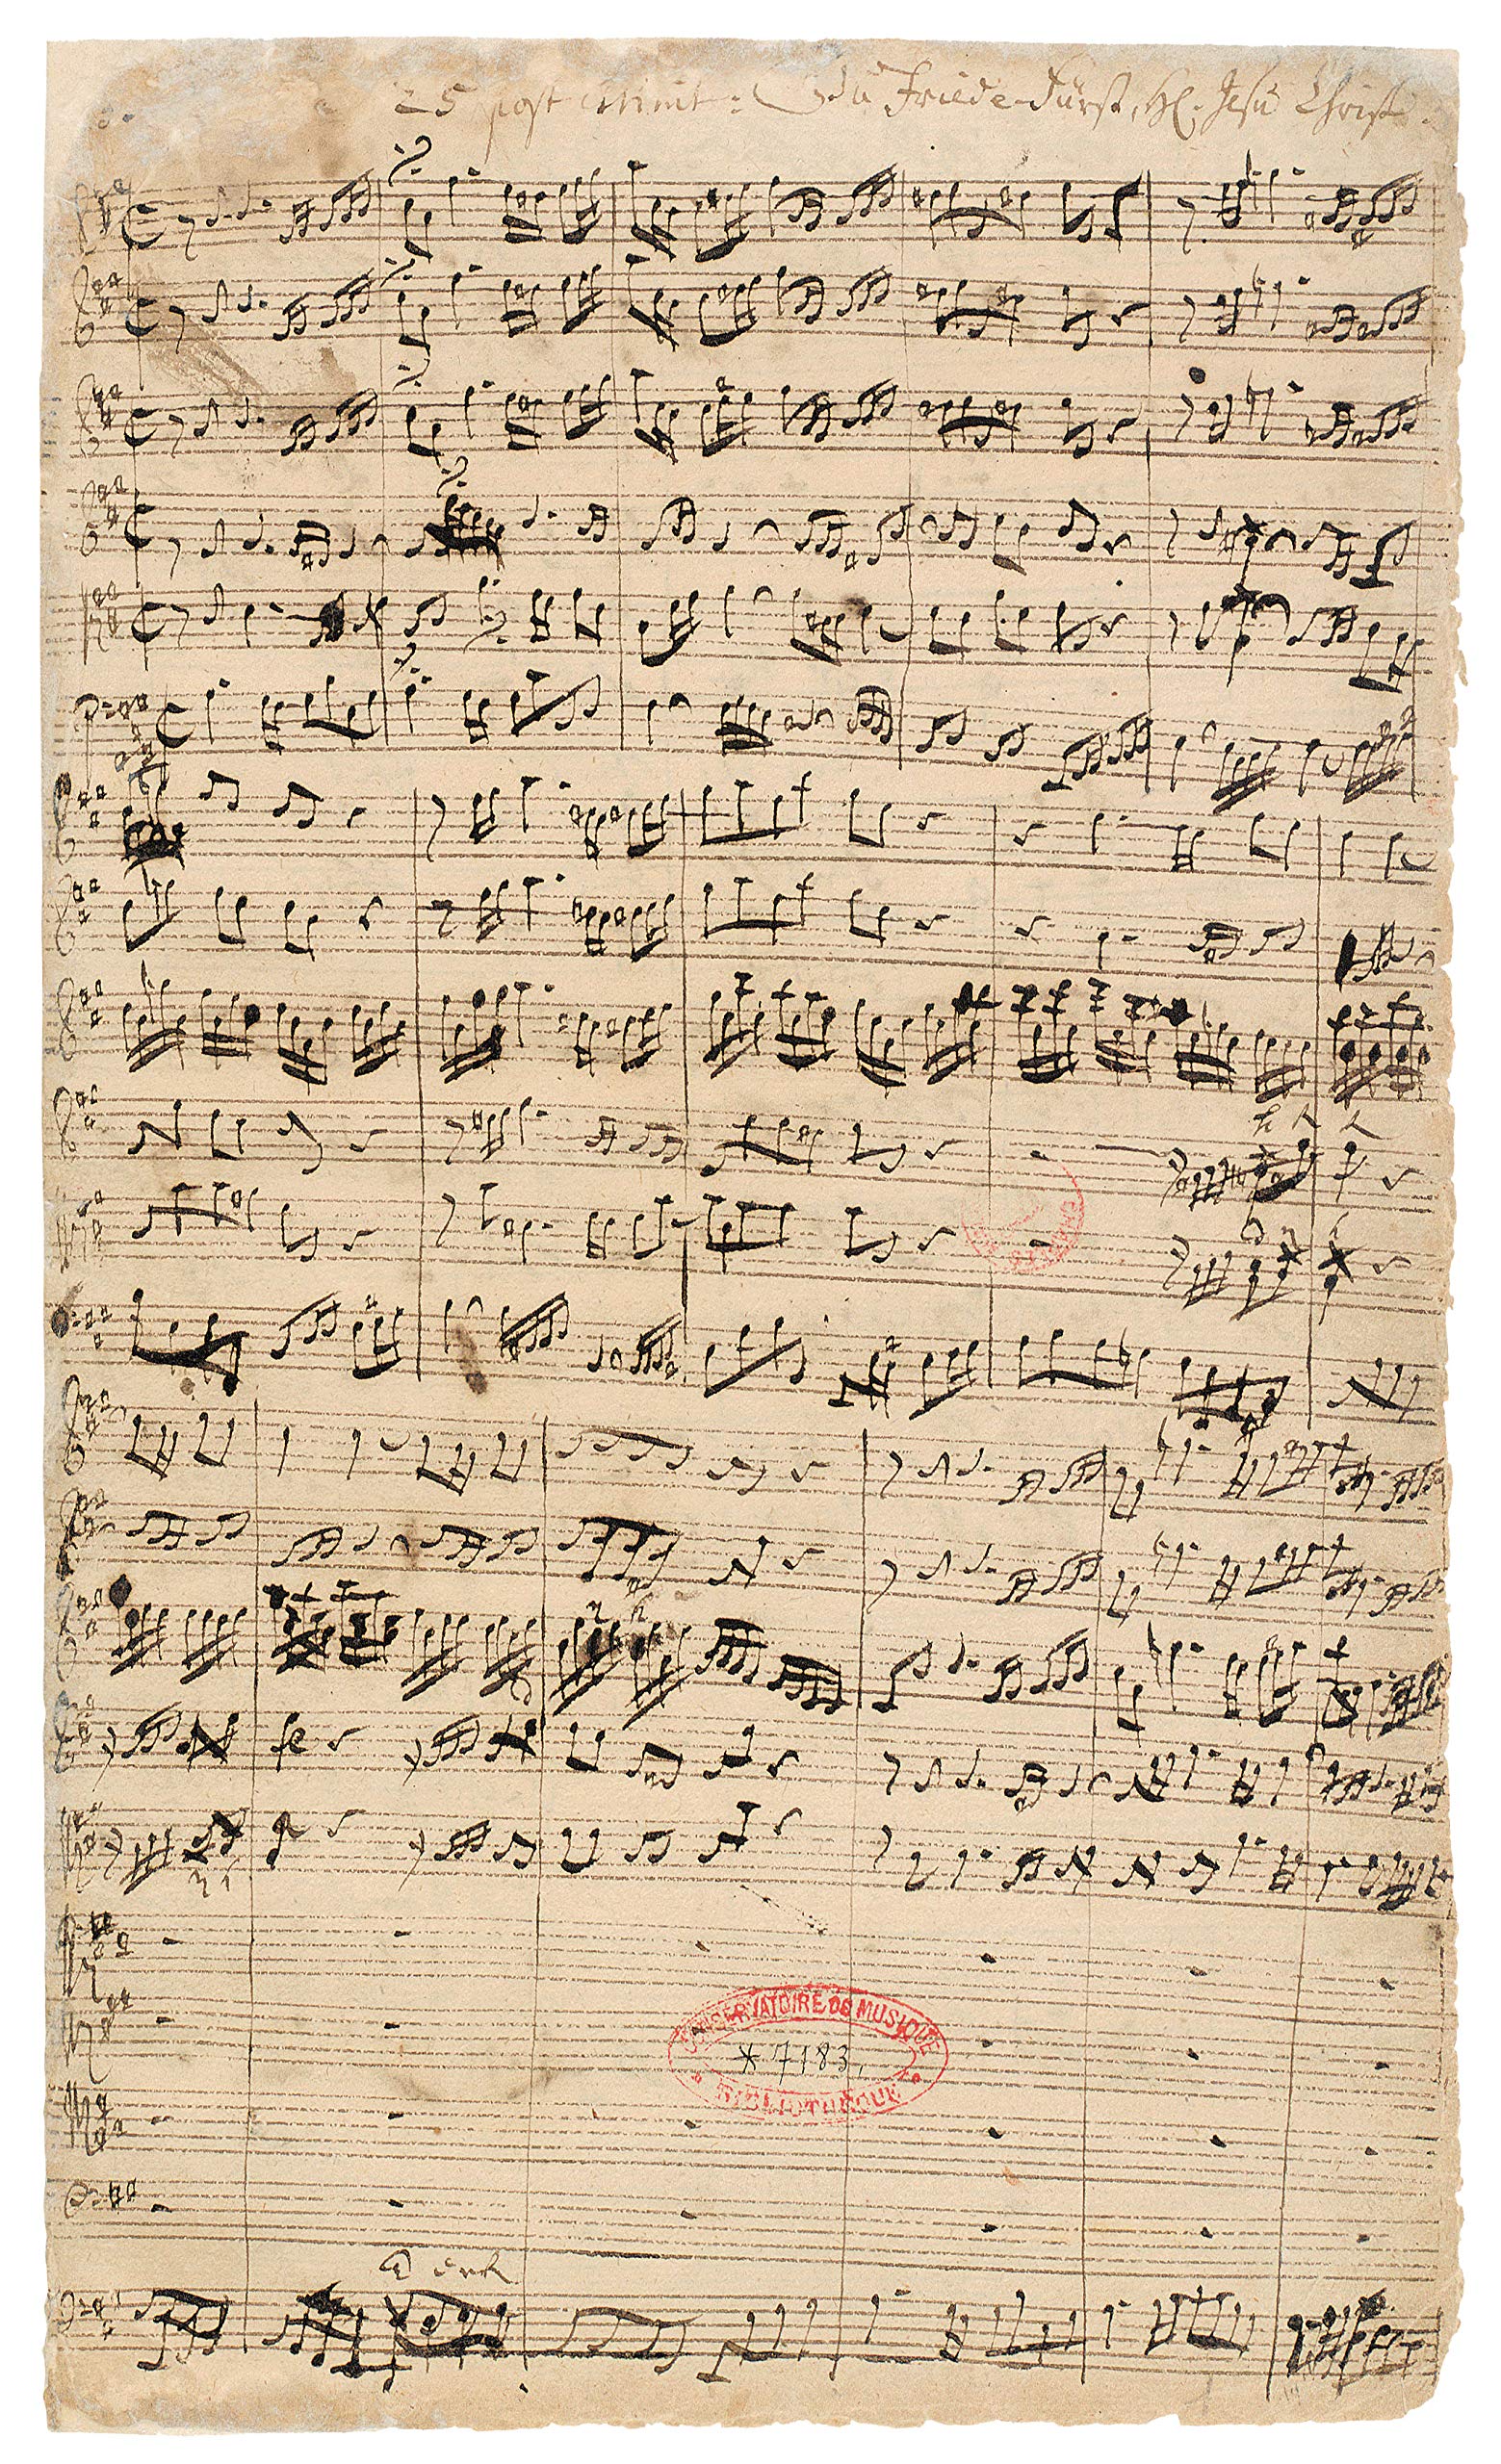 25 post Trinit: Du Friede-Fürst, H. Jesu Christ.
CONSERVATOIRE DE MUSIQUE
* 7183.
BIBLIOTHÈQUE